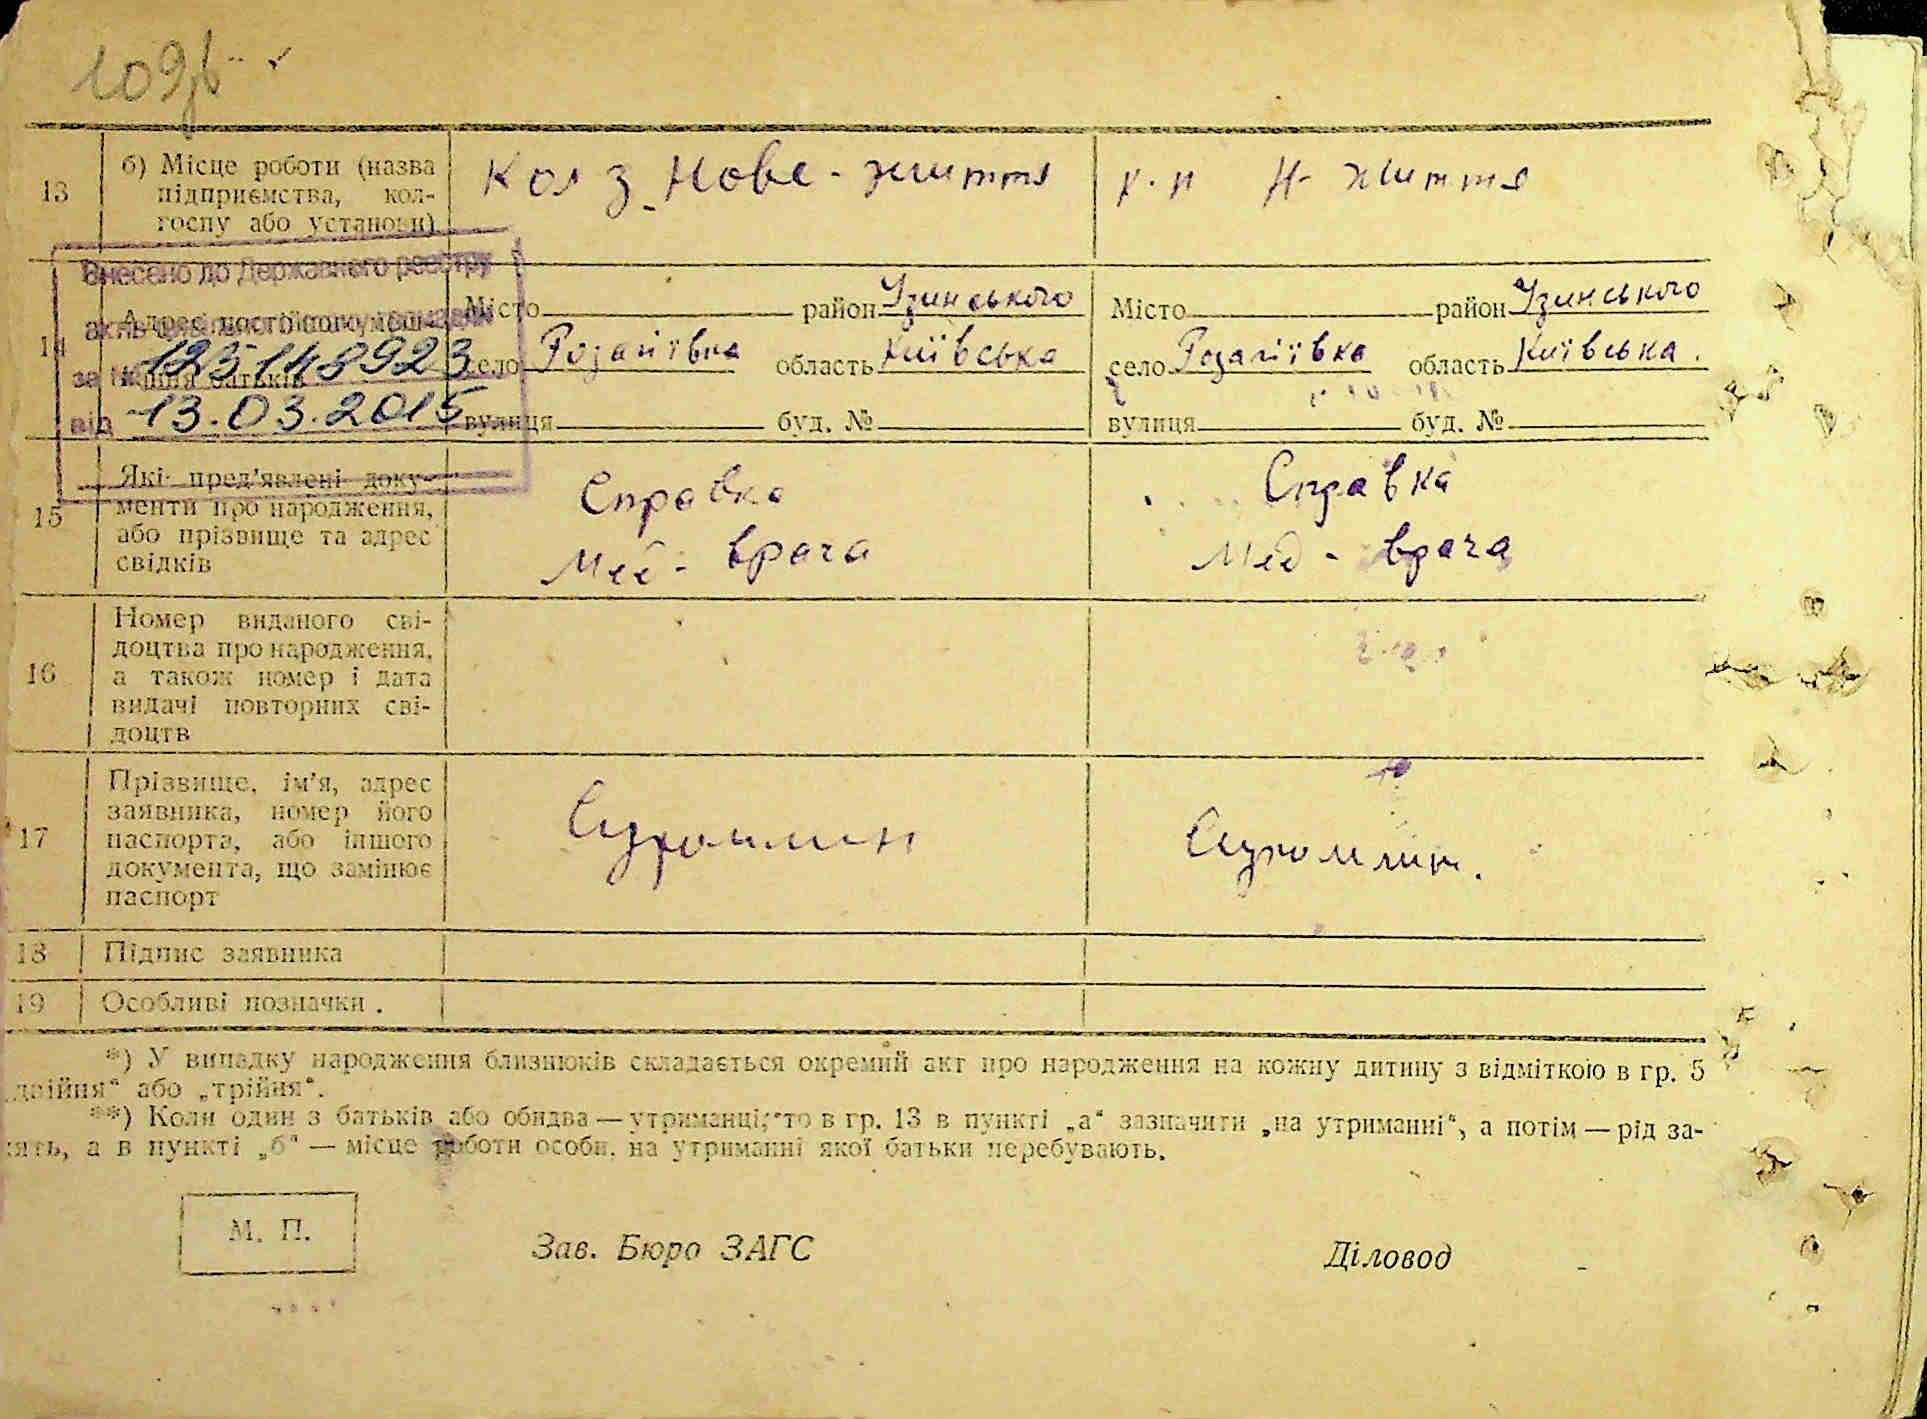 109зв
13 б) Місце роботи (назва підприємства, колгоспу або установи) Кол з Нове-життя к.п Н-життя
Внесено до Державного реєстру
актів
за № 125148923
від 13.03.2015
14 Адрес постійного батьків
Місто район Узинського Місто район Узинського
село Розаліївка область Київська село Розаліївка область Київська.
вулиця буд. № вулиця буд. №
15 Які пред'явлені доку-
менти про народження,
або прізвище та адрес
свідків
Справка Справка
Мед-врача Мед-врача
16 Номер виданого сві-
доцтва про народження,
а також номер і дата
видачі повторних сві-
доцтв
17 Прізвище, ім'я, адрес
заявника, номер його
паспорта, або іншого
документа, що замінює
паспорт
Сухомлин Сухомлин.
18 Підпис заявника
19 Особливі позначки.
*) У випадку народження близнюків складається окремий акт про народження на кожну дитину з відміткою в гр. 5
„двійня“ або „трійня“.
**) Коли один з батьків або обидва — утриманці, то в гр. 13 в пункті „а“ зазначити „на утриманні“, а потім — рід за-
нять, а в пункті „б“ — місце роботи особи, на утриманні якої батьки перебувають.
М. П.
Зав. Бюро ЗАГС Діловод